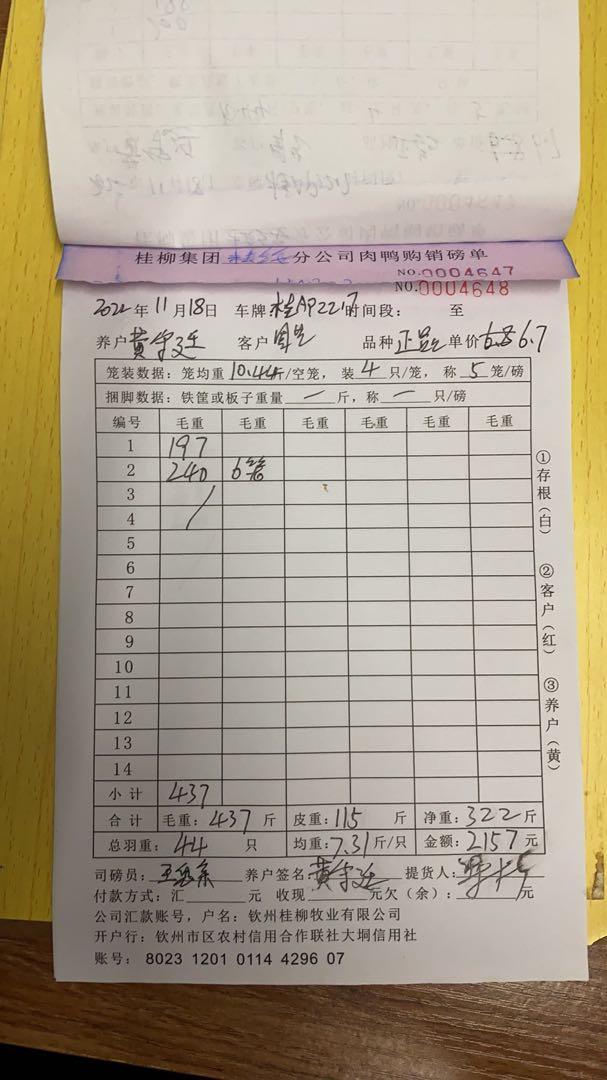 桂柳集团 分公司肉鸭购销磅单
NO.0004647
NO.0004648
2022年11月18日 车牌 桂AP22 时间段: 至
养户 黄 客户 品种 单价 6.7
笼装数据: 笼均重10.44斤/空笼, 装4只/笼, 称5笼/磅
捆脚数据: 铁筐或板子重量 一 斤, 称 一 只/磅
编号 毛重 毛重 毛重 毛重 毛重 毛重
1 197
2 240 6笼
3
4
5
6
7
8
9
10
11
12
13
14
小计 437
合计 毛重: 437 斤 皮重: 115 斤 净重: 322 斤
总羽重: 44 只 均重: 7.31 斤/只 金额: 2157 元
司磅员: 王 养户签名: 黄 提货人:
付款方式: 汇 元 收现 元欠(余): 元
公司汇款账号, 户名: 钦州桂柳牧业有限公司
开户行: 钦州市区农村信用合作联社大垌信用社
账号: 8023 1201 0114 4296 07
①存根(白)
②客户(红)
③养户(黄)